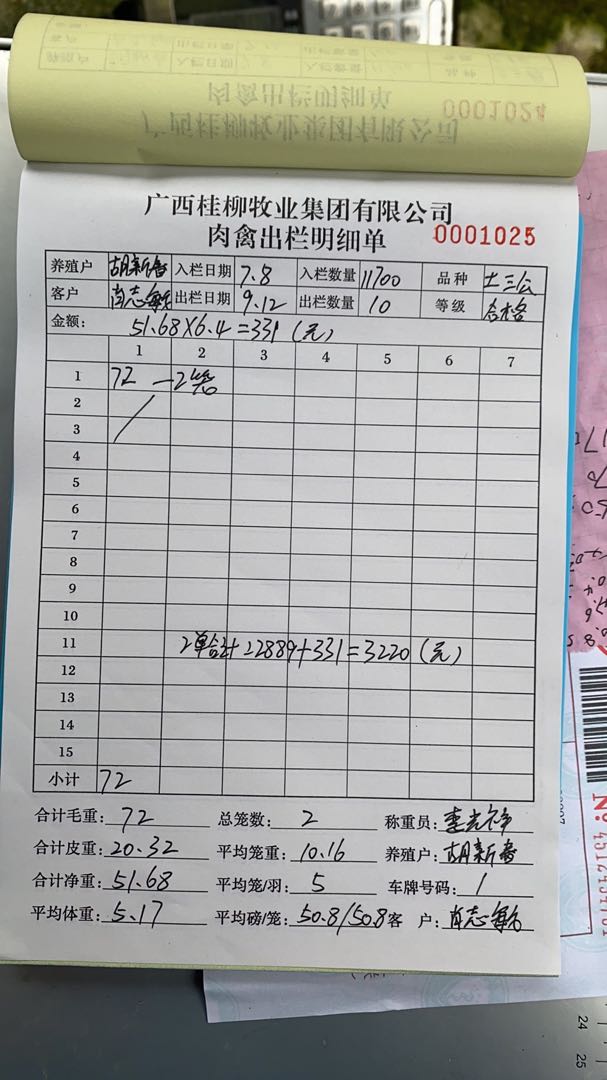 广西桂柳牧业集团有限公司
肉禽出栏明细单
0001024
广西桂柳牧业集团有限公司
肉禽出栏明细单 0001025
养殖户 胡新春 入栏日期 7.8 入栏数量 11700 品种 土三公
客户 肖志敏 出栏日期 9.12 出栏数量 10 等级 合格
金额: 51.68×6.4=331(元)
1 2 3 4 5 6 7
1 72 —2笼
2
3
4
5
6
7
8
9
10
11 2单合计:2889+331=3220(元)
12
13
14
15
小计 72
合计毛重: 72 总笼数: 2 称重员:
合计皮重: 20.32 平均笼重: 10.16 养殖户: 胡新春
合计净重: 51.68 平均笼/羽: 5 车牌号码: 1
平均体重: 5.17 平均磅/笼: 50.8/50.8 客 户: 肖志敏
24
25